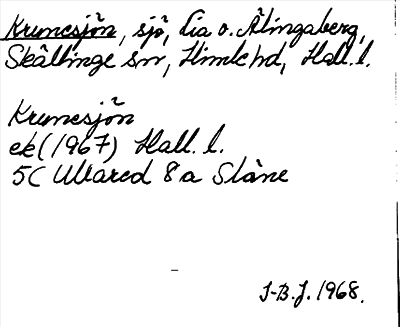 Krumesjön, sjö, Lia o. Älingaberg,
Skällinge sn, Himle hd, Hall. l.
Krumesjön
ek (1967) Hall. l.
5C Ullared 8a Släne
I-B.J. 1968.